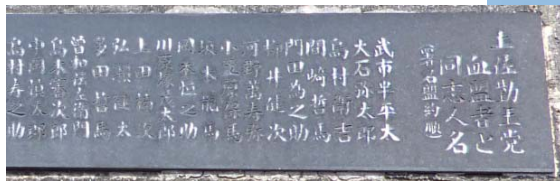 土佐勤王党
血盟者と
同志人名
(署名盟約順)
武市半平太
大石弥太郎
島村衛吉
間崎哲馬
門田為之助
柳井健次
河野万寿弥
小笠原保馬
坂本龍馬
岡本恒之助
川原塚茂太郎
上田楠次
弘瀬健太
多田哲馬
曽和伝左衛門
島本審次郎
中岡慎太郎
島村寿之助